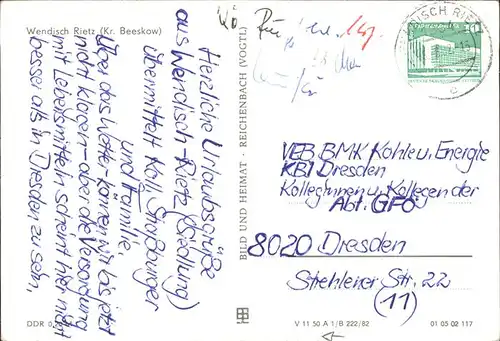 Wendisch Rietz (Kr. Beeskow)
Herzliche Urlaubsgrüße
aus Wendisch-Rietz (Siedlung)
übermittelt Koll. Straßburger
und Familie.
Über das Wetter können wir bis jetzt
nicht klagen - aber die Versorgung
mit Lebensmitteln scheint hier nicht
besser als in Dresden zu sein.
DDR
BILD UND HEIMAT · REICHENBACH (VOGTL)
WENDISCH RIETZ
10
VEB BMK Kohle u. Energie
KBI Dresden
Kolleginnen u. Kollegen der
Abt. GFÖ
8020 Dresden
Strehlener Str. 22
(11)
V 11 50 A 1/B 222/82
01 05 02 117